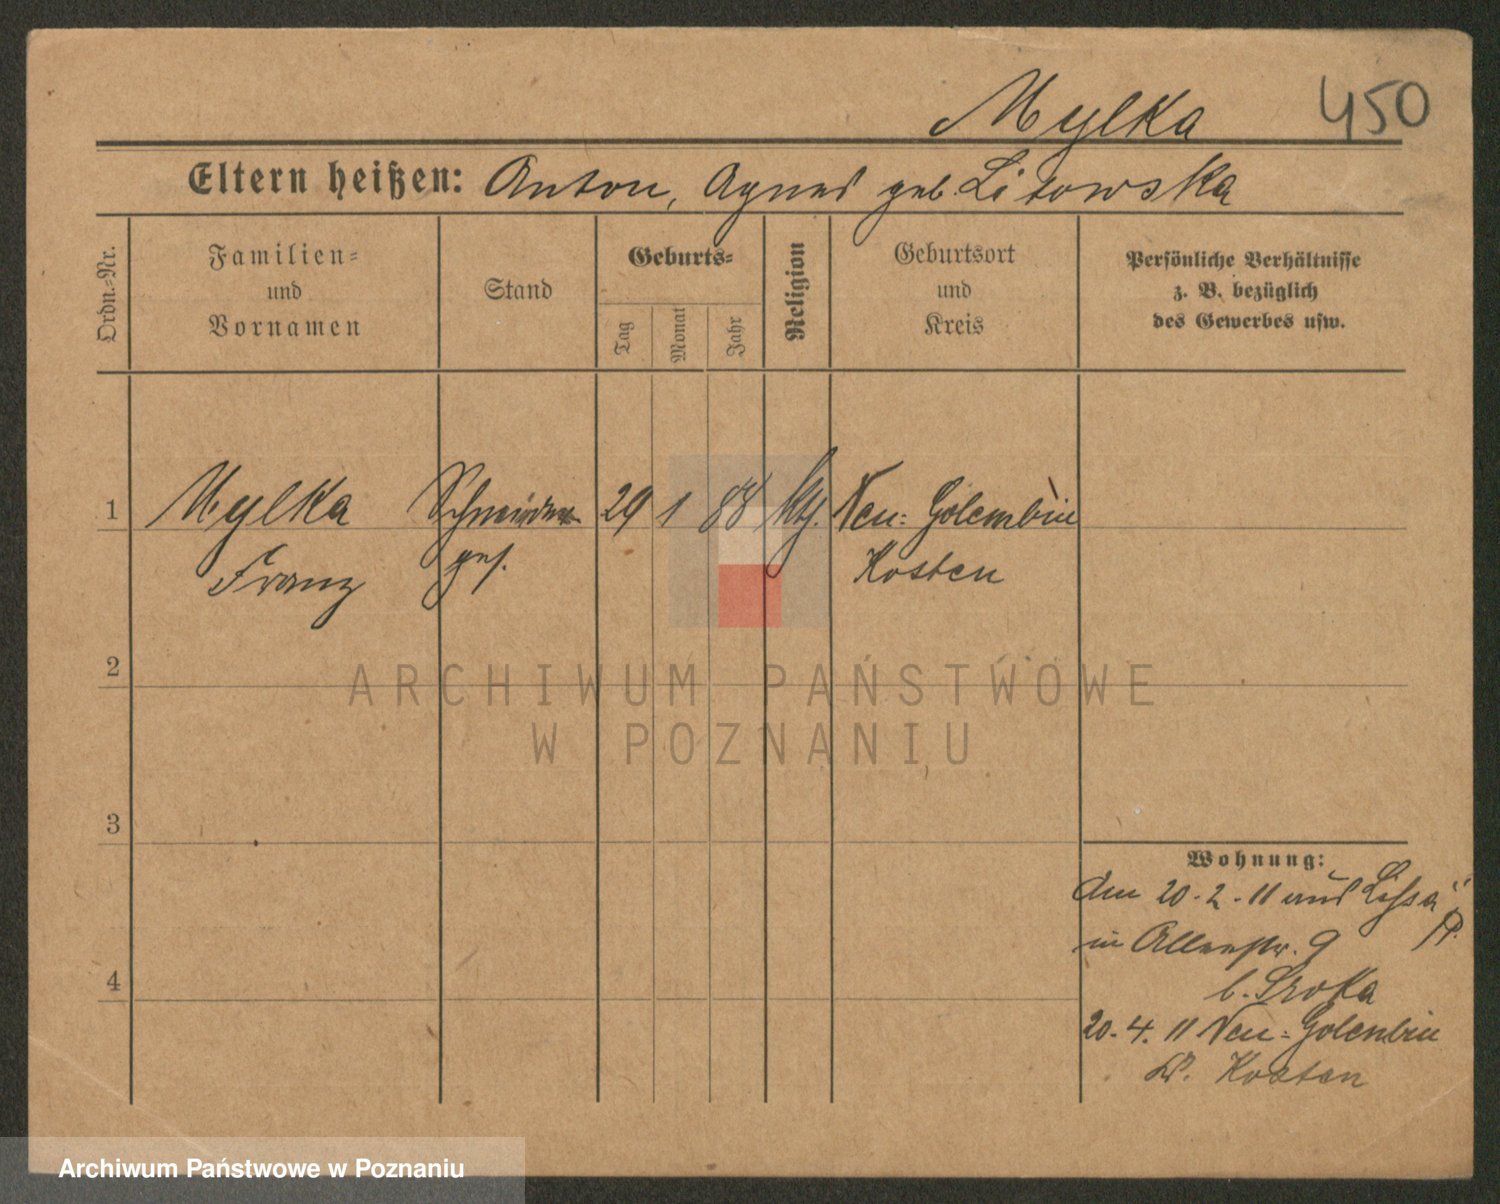 Mylka
450
Eltern heißen: Anton, Agnes geb. Litowska
Ordn.-Nr.
Familien-
und
Vornamen
Stand
Geburts-
Tag
Monat
Jahr
Religion
Geburtsort
und
Kreis
Persönliche Verhältnisse
z. B. bezüglich
des Gewerbes usw.
1
Mylka
Franz
Schneider
ges.
29
1
88
kth.
Neu-Golembin
Kosten
2
3
4
Wohnung:
den 20.2.11 aus Lissa
in Allerstr. 9
b. Sroka
20.4.11 Neu-Golembin
Kr. Kosten
ARCHIWUM PAŃSTWOWE
W POZNANIU
Archiwum Państwowe w Poznaniu